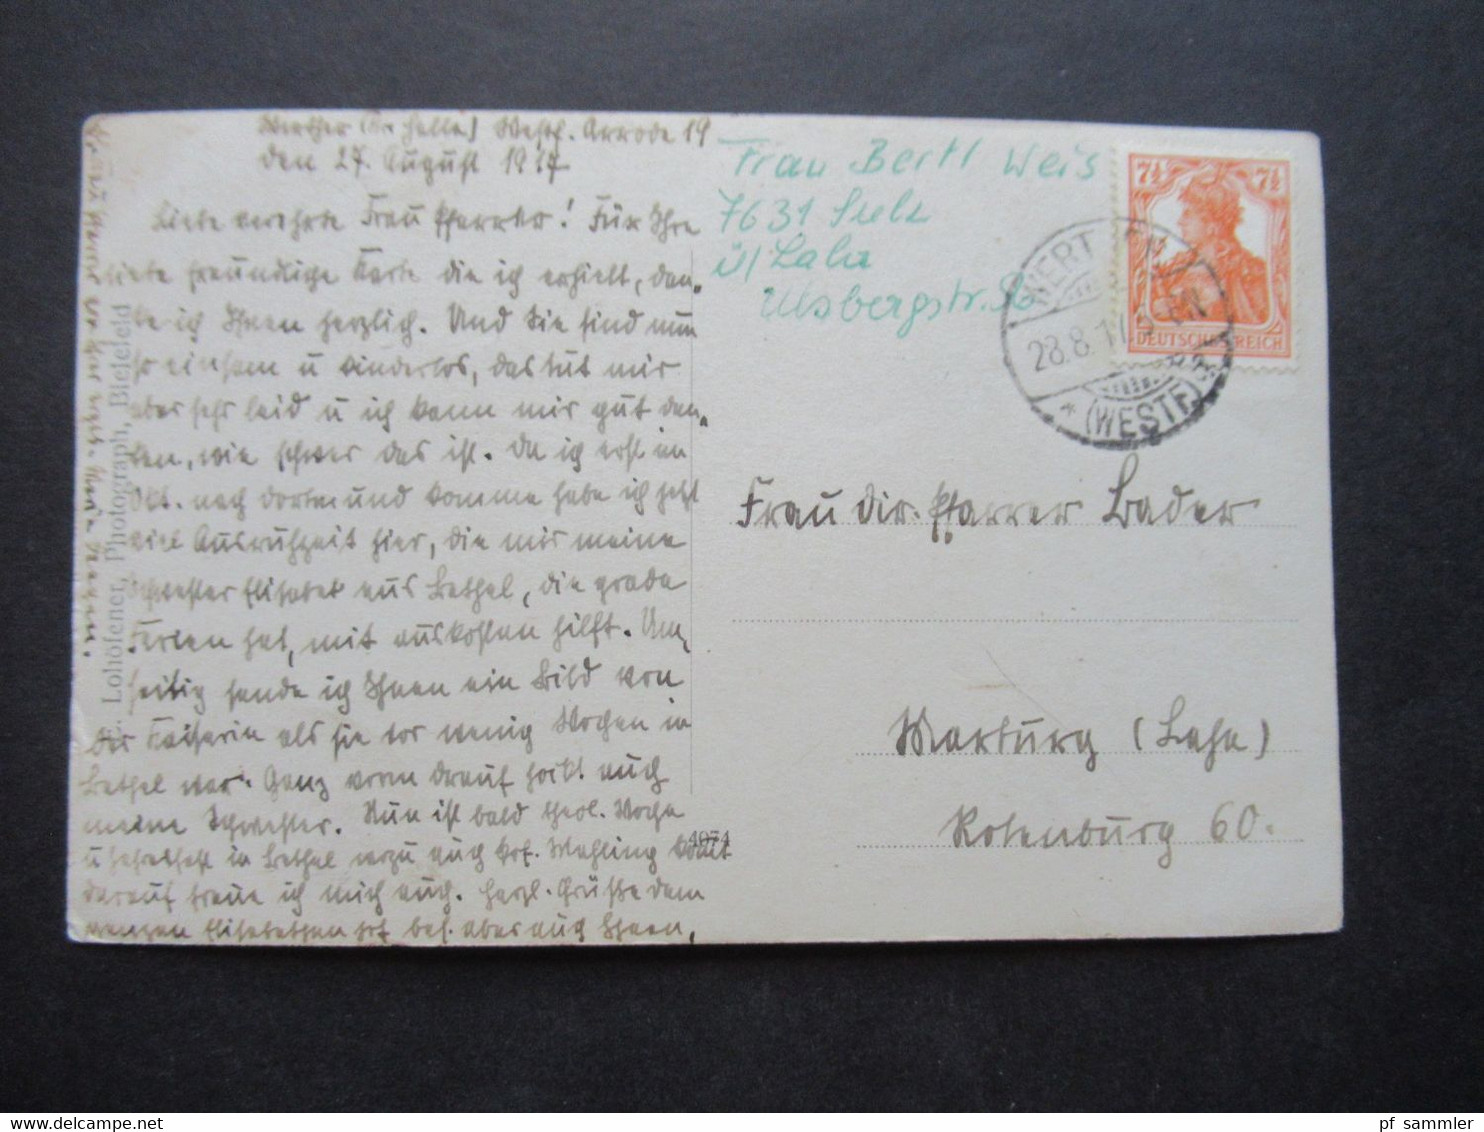 Werther (Kr. Halle) Westf. Arrode 19
den 27. August 1917
Liebe verehrte Frau Pfarrer! Für Ihre
liebe freundliche Karte die ich erhielt, dan-
ke ich Ihnen herzlich. Und Sie sind nun
so einsam u kinderlos, das tut mir
aber sehr leid u ich kann mir gut den-
ken, wie schwer das ist. Da ich erst im
Okt. nach Dortmund komme habe ich jetzt
viel Ausruhzeit hier, die mir meine
Schwester Elisabet aus Bethel, die grade
Ferien hat, mit auskosten hilft. Um-
seitig sende ich Ihnen ein Bild von
der Kaiserin als sie vor wenig Wochen in
Bethel war. Ganz vorn drauf hockt auch
meine Schwester. Nun ist bald theol. Woche
u in Bethel wozu auch Prof. Mahling kommt
darauf freue ich mich auch. Herzl. Grüße dem
ganzen Elisabethenhof bes. aber auch Ihnen,
Lohöfener, Photograph, Bielefeld
4974
Frau Bertl Weis
7631 Sulz
ü/ Lahr
28.8.17
(WESTF.)
7½ 7½
DEUTSCHES REICH
Frau Dir. Pfarrer Bader
Marburg (Lahn)
Rotenburg 60.
pf sammler